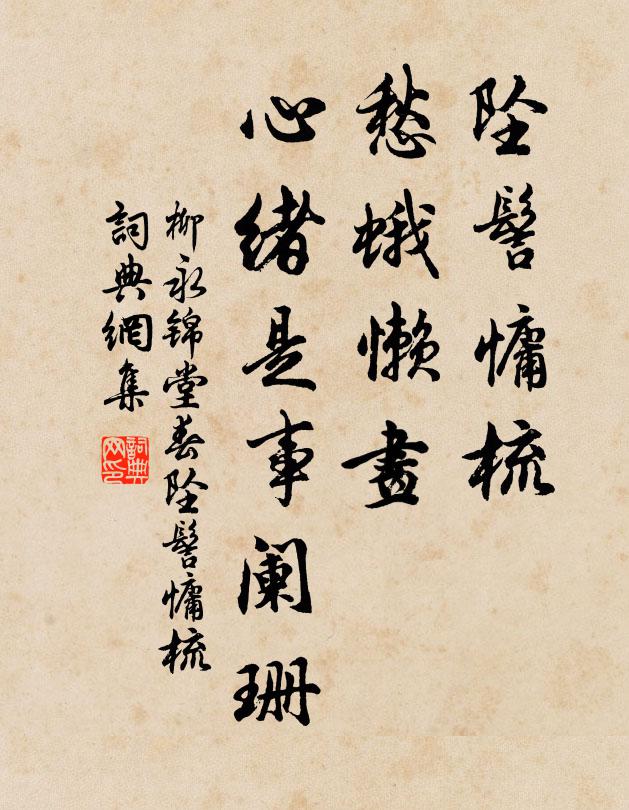 坠髻慵梳
愁蛾懒畫
心绪是事阑珊
柳永锦堂春坠髻慵梳
詞典網集
詞典网印